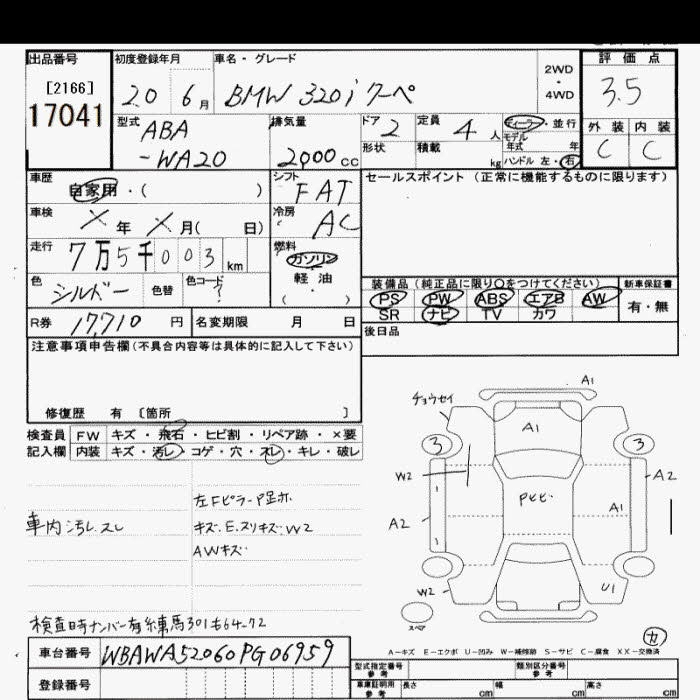 出品番号
[2166]
17041
初度登録年月
20 6月
車名・グレード
BMW 320i クーペ
2WD
・
4WD
評価点
3.5
外装 内装
C C
型式
ABA
-WA20
排気量
2000 cc
ドア 2
定員 4 人
形状
積載 kg
ディーラー・並行
モデル
年式 年
ハンドル 左・右
車歴
自家用・( )
シフト
FAT
車検
X 年 X 月( 日)
冷房
AC
走行
7万5千003 km
燃料
ガソリン
軽油
( ・ )
色
シルバー
色替
色コード
?
R券 17,710 円
名変期限 月 日
セールスポイント (正常に機能するものに限ります)
装備品 (純正品に限り○をつけてください)
PS PW ABS エアB AW
SR ナビ TV カワ
新車保証書
有・無
後日品
注意事項申告欄(不具合内容等は具体的に記入して下さい)
修復歴 有 〔箇所 〕
検査員 FW キズ・飛石・ヒビ割・リペア跡・×要
記入欄 内装 キズ・汚レ・コゲ・穴・スレ・キレ・破レ
車内汚レ.スレ
キズ.E.スリキズ.W2
AWキズ
検査時ナンバー有練馬301も64-72
チョウセイ
A1
A1
3
3
W2
A2
A2
A1
W2
U1
スペア
カ
A-キズ E-エクボ U-凹み W-補修跡 S-サビ C-腐食 XX-交換済
車台番号 WBAWA52060PG06959
登録番号
型式指定番号
参考
類別区分番号
参考
車庫証明用
参考
長さ cm
幅 cm
高さ cm